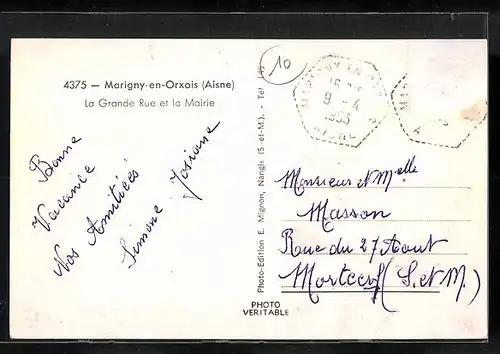 4375 — Marigny-en-Orxois (Aisne)
La Grande Rue et la Mairie
10
Bonne
Vacance
Nos Amitiées
Simone Josiane
Photo-Edition E. Mignon, Nangis (S.-et-M.). - Tél. 145
PHOTO
VERITABLE
MARIGNY-EN-ORX
9 - 4
1953
AISNE
MAR
A
Monsieur et Melle
Masson
Rue du 27 Aout
Mortcerf (S. et M.)